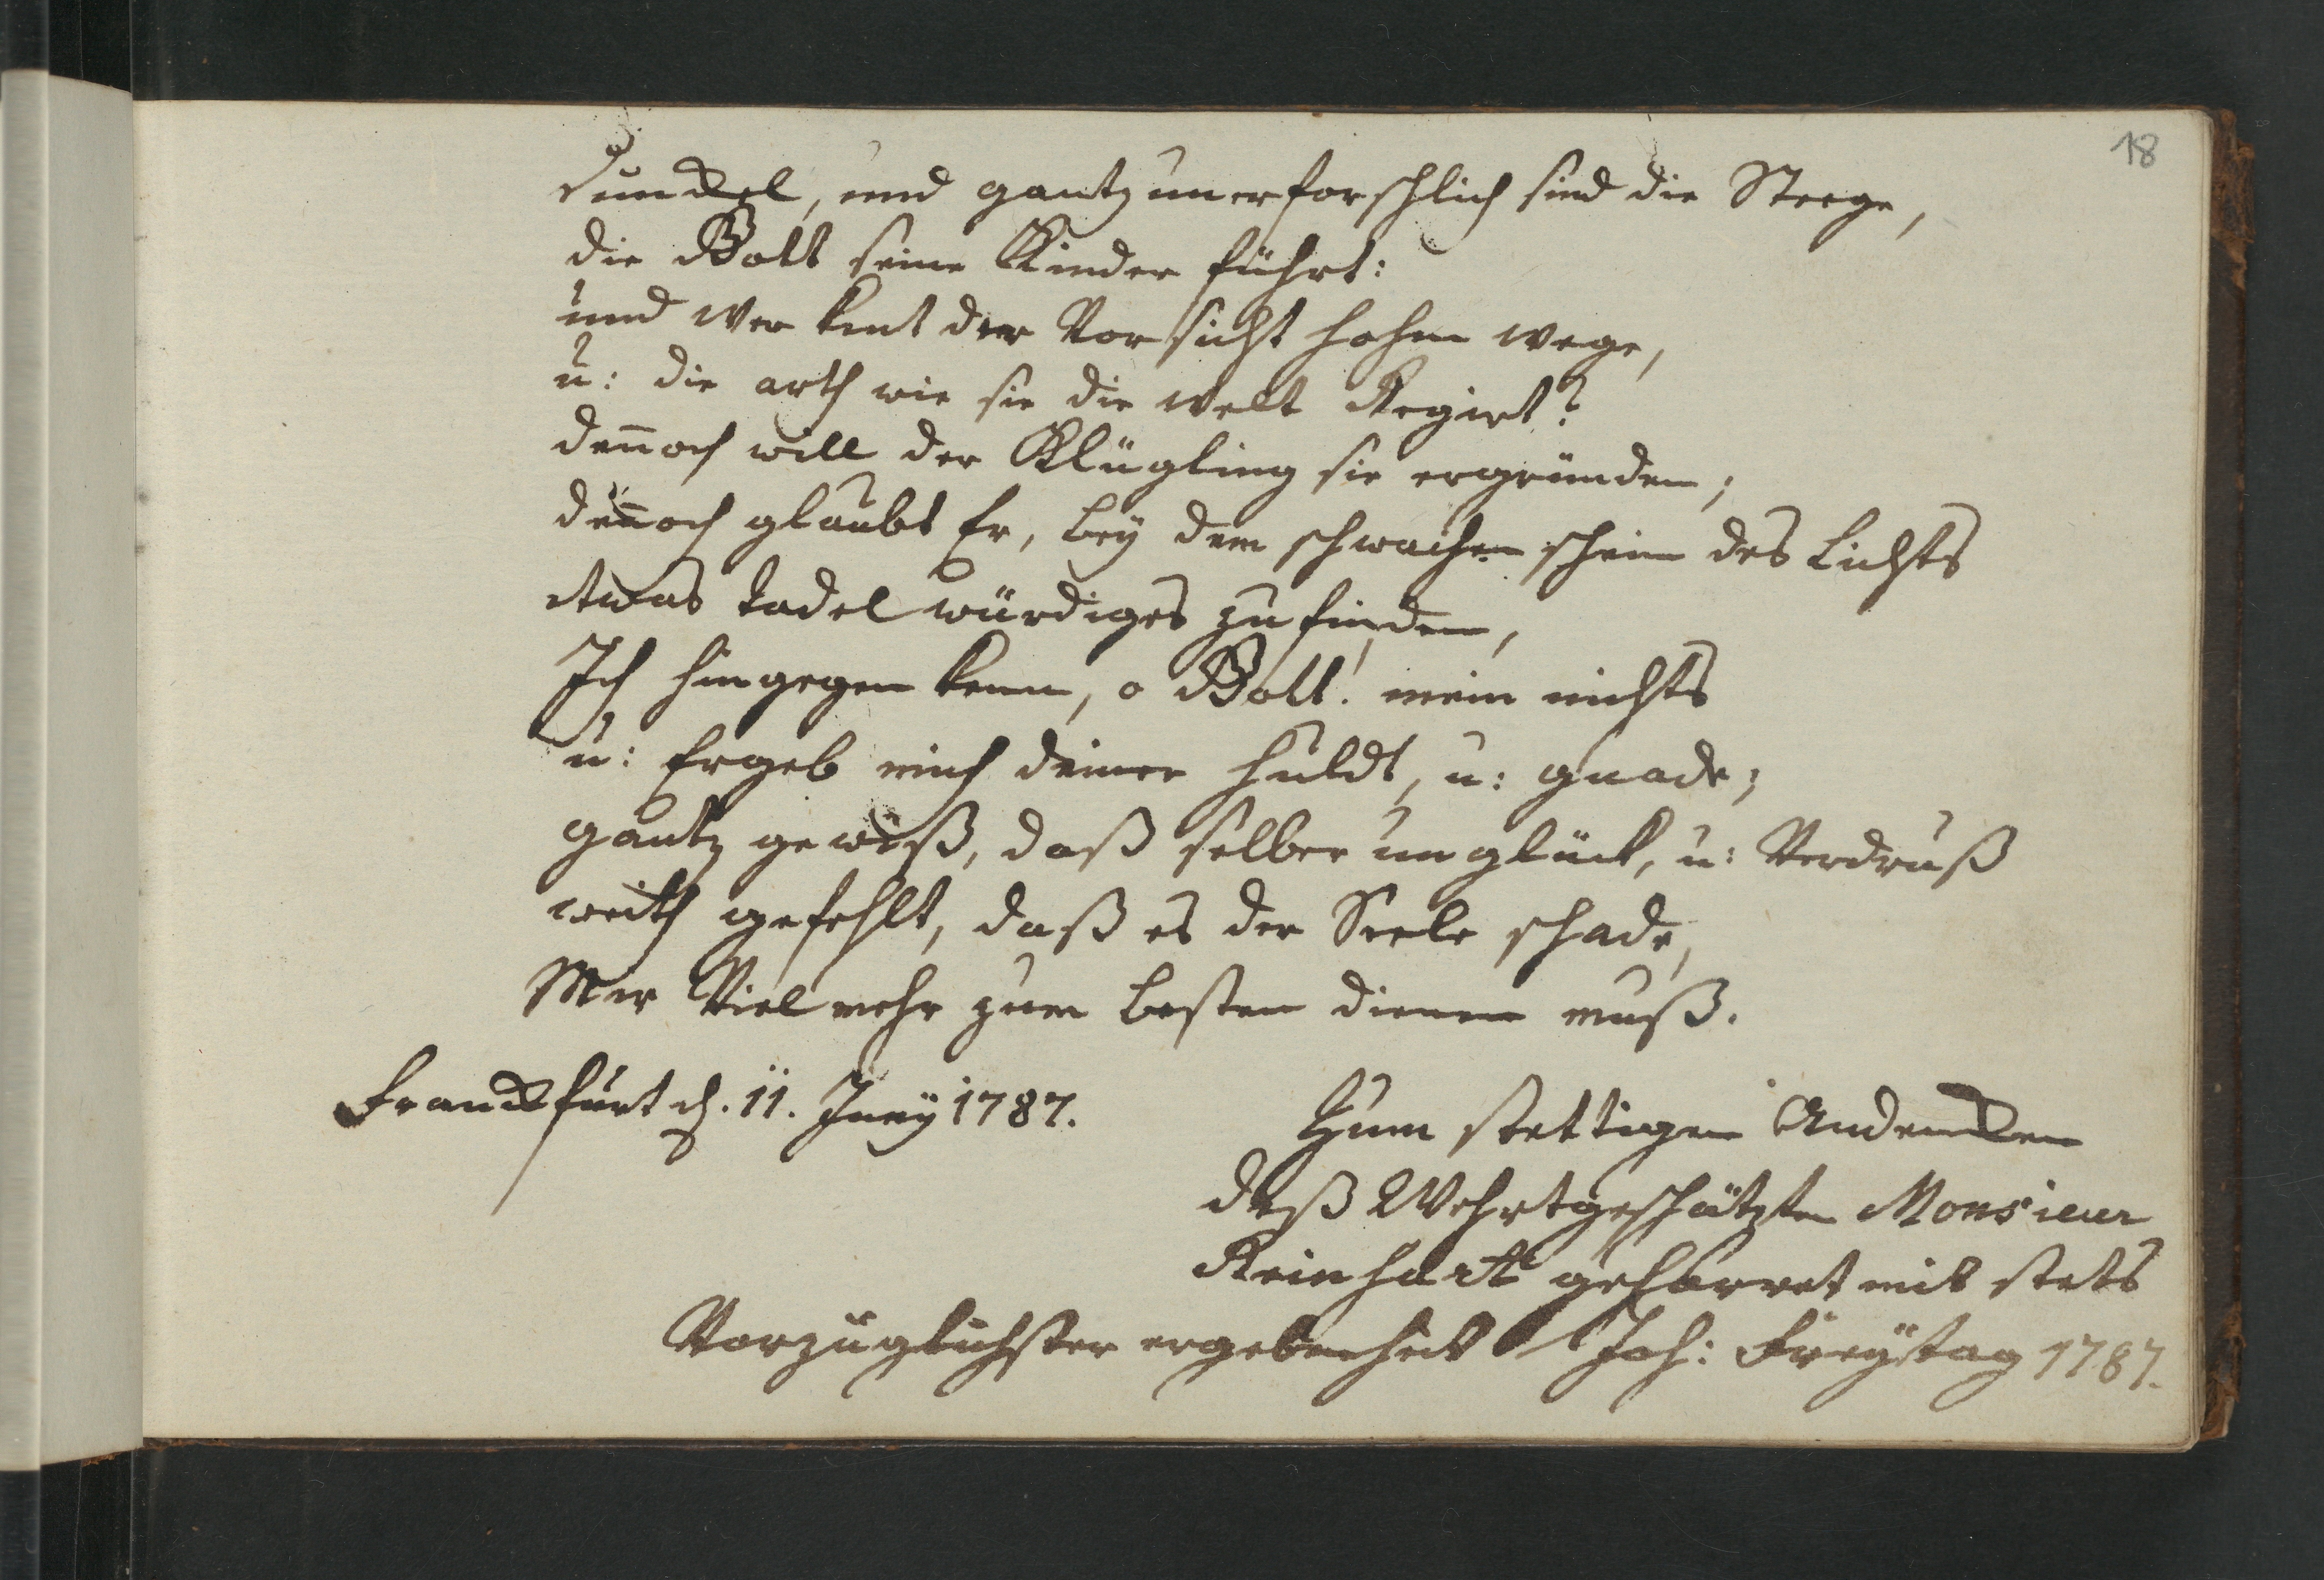 18
Dunckel, und gantz unerforschlich sind die Steege,
die Gott seine Kinder führt:
und wer kent der Vorsicht hohen wege,
u: die arth wie sie die welt Regirt?
deñoch will der Klügling sie ergründen;
deñoch glaubt Er, bey dem schwachen schein des Lichts
etwas tadel würdiges zu finden,
Ich hingegen kenn, o Gott! mein nichts
u: Ergeb mich deiner Huldt, u: gnade;
gantz gewiß, daß selber unglück, u: Verdruß
weith gefehlt, daß es der Seele schade,
Mir Viel mehr zum besten dienen muß.
Franckfurt d. 11. Juny 1787.
Zum stettigen Andencken
deß Wehrtgeschätzten Monsieur
Reinhart geharret mit stets
Vorzüglichster ergebenheit Joh: Freÿtag 1787.